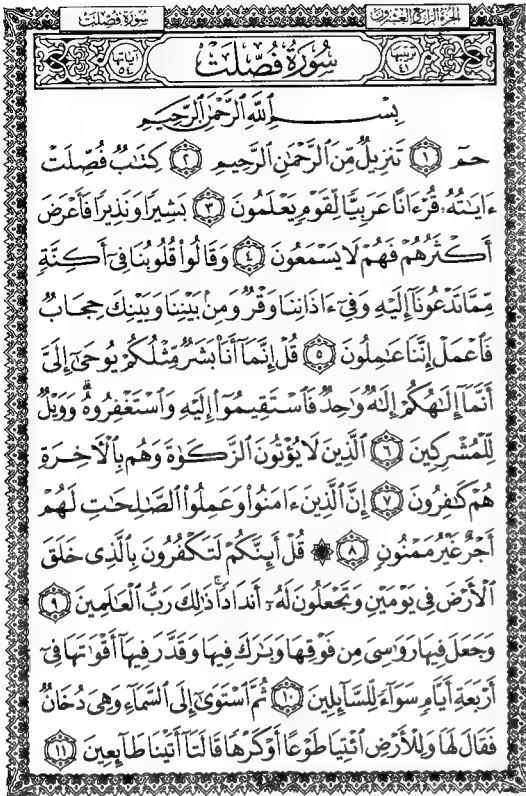 سُورَةُ فُصِّلَتْ
الجزء الرابع والعشرون
آياتها ٥٤
سُورَةُ فُصِّلَتْ
ترتيبها ٤١
بِسْمِ ٱللَّهِ ٱلرَّحْمَٰنِ ٱلرَّحِيمِ
حمٓ ١ تَنزِيلٌ مِّنَ ٱلرَّحْمَٰنِ ٱلرَّحِيمِ ٢ كِتَٰبٌ فُصِّلَتْ
ءَايَٰتُهُۥ قُرْءَانًا عَرَبِيًّا لِّقَوْمٍ يَعْلَمُونَ ٣ بَشِيرًا وَنَذِيرًا فَأَعْرَضَ
أَكْثَرُهُمْ فَهُمْ لَا يَسْمَعُونَ ٤ وَقَالُوا۟ قُلُوبُنَا فِىٓ أَكِنَّةٍ
مِّمَّا تَدْعُونَآ إِلَيْهِ وَفِىٓ ءَاذَانِنَا وَقْرٌ وَمِنۢ بَيْنِنَا وَبَيْنِكَ حِجَابٌ
فَٱعْمَلْ إِنَّنَا عَٰمِلُونَ ٥ قُلْ إِنَّمَآ أَنَا۠ بَشَرٌ مِّثْلُكُمْ يُوحَىٰٓ إِلَىَّ
أَنَّمَآ إِلَٰهُكُمْ إِلَٰهٌ وَٰحِدٌ فَٱسْتَقِيمُوٓا۟ إِلَيْهِ وَٱسْتَغْفِرُوهُ ۗ وَوَيْلٌ
لِّلْمُشْرِكِينَ ٦ ٱلَّذِينَ لَا يُؤْتُونَ ٱلزَّكَوٰةَ وَهُم بِٱلْءَاخِرَةِ
هُمْ كَٰفِرُونَ ٧ إِنَّ ٱلَّذِينَ ءَامَنُوا۟ وَعَمِلُوا۟ ٱلصَّٰلِحَٰتِ لَهُمْ
أَجْرٌ غَيْرُ مَمْنُونٍ ٨ ۞ قُلْ أَئِنَّكُمْ لَتَكْفُرُونَ بِٱلَّذِى خَلَقَ
ٱلْأَرْضَ فِى يَوْمَيْنِ وَتَجْعَلُونَ لَهُۥٓ أَندَادًا ۚ ذَٰلِكَ رَبُّ ٱلْعَٰلَمِينَ ٩
وَجَعَلَ فِيهَا رَوَٰسِىَ مِن فَوْقِهَا وَبَٰرَكَ فِيهَا وَقَدَّرَ فِيهَآ أَقْوَٰتَهَا فِىٓ
أَرْبَعَةِ أَيَّامٍ سَوَآءً لِّلسَّآئِلِينَ ١٠ ثُمَّ ٱسْتَوَىٰٓ إِلَى ٱلسَّمَآءِ وَهِىَ دُخَانٌ
فَقَالَ لَهَا وَلِلْأَرْضِ ٱئْتِيَا طَوْعًا أَوْ كَرْهًا قَالَتَآ أَتَيْنَا طَآئِعِينَ ١١